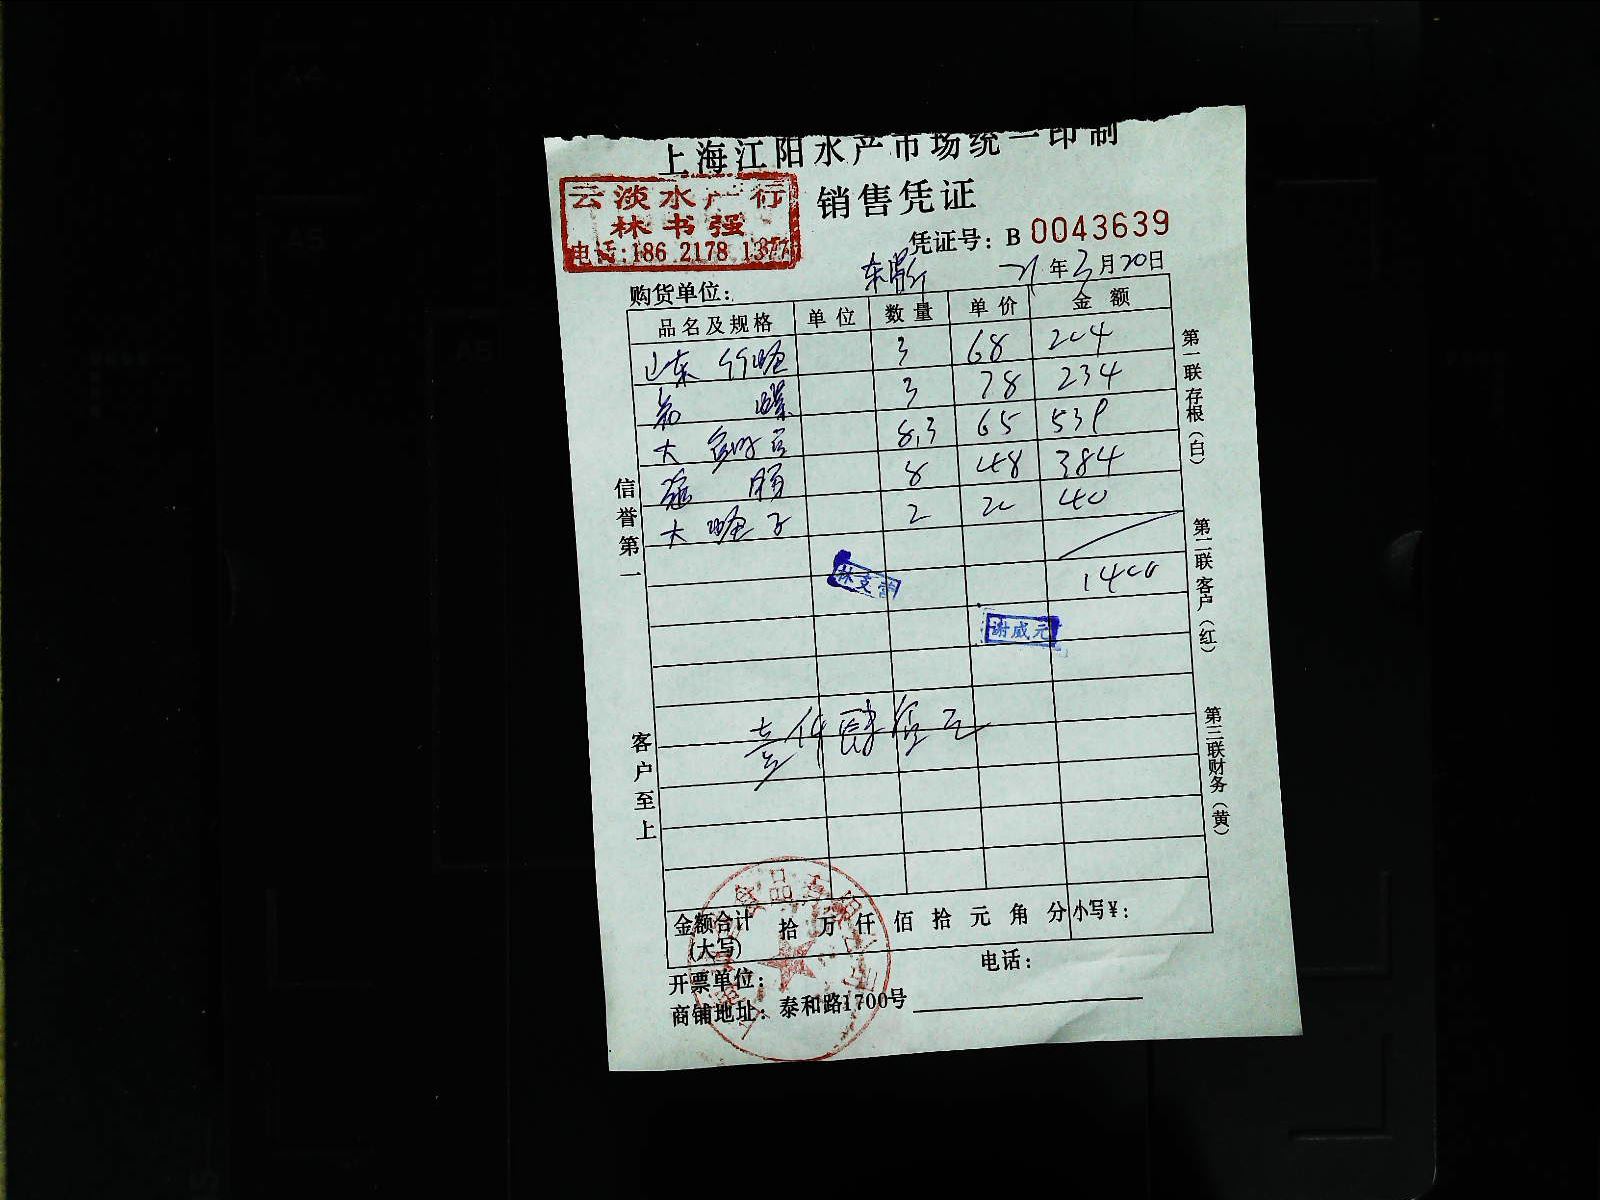 上海江阳水产市场统一印制
云淡水产行
林书强
电话:186 2178 1377
销售凭证
凭证号: B 0043639
21年3月20日
购货单位:
品名及规格 单位 数量 单价 金额
山东 竹蛏 3 68 204
螺 3 78 234
大 8.3 65 539
8 48 384
大蛏子 2 20 40
1400
林支营
谢威元
壹仟肆佰元
金额合计(大写) 拾 万 仟 佰 拾 元 角 分 小写¥:
开票单位: 电话:
商铺地址: 泰和路1700号
信誉第一
客户至上
第一联存根(白)
第二联客户(红)
第三联财务(黄)